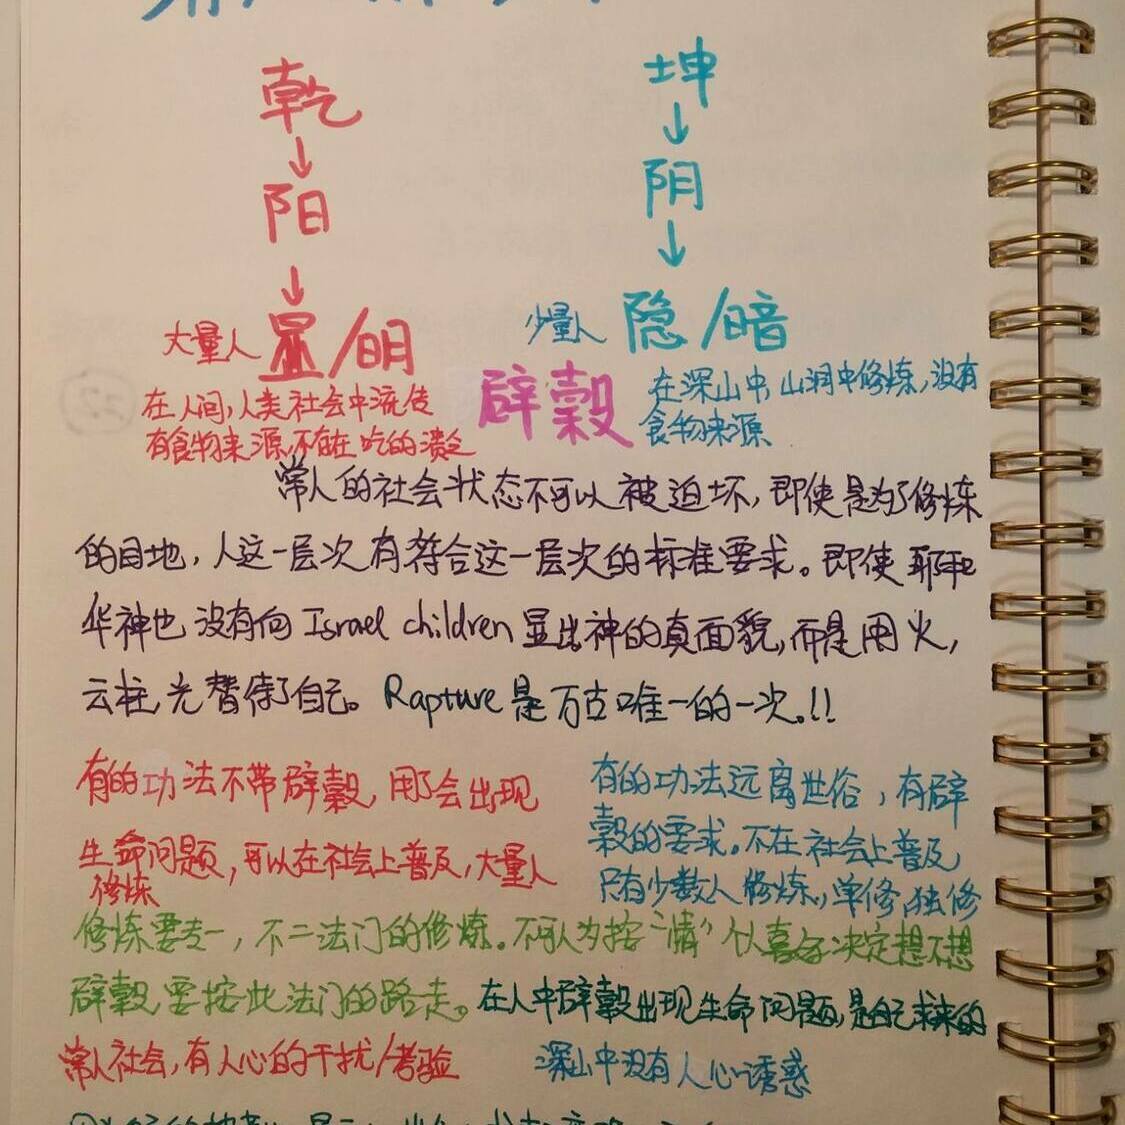 乾 坤
↓ ↓
阳 阴
↓ ↓
大量人 显/明 少量人 隐/暗
在人间,人类社会中流传
有食物来源,不存在吃的
辟穀
在深山中,山洞中修炼,没有
食物来源
常人的社会状态不可以被迫坏,即使是为了修炼
的目地,人这一层次有符合这一层次的标准要求。即使耶和
华神也没有向Israel children显出神的真面貌,而是用火,
云柱,光替代了自己。Rapture是万古唯一的一次。!!
有的功法不带辟穀,用了会出现
生命问题,可以在社会上普及,大量人
修炼
有的功法远离世俗,有辟
穀的要求。不在社会上普及
只有少数人修炼,单修,独修
修炼要专一,不二法门的修炼。不可人为按“情”个人喜好决定想不想
辟穀,要按此法门的路走。在人中辟穀出现生命问题,是自己求来的
常人社会,有人心的干扰/考验
深山中没有人心诱惑